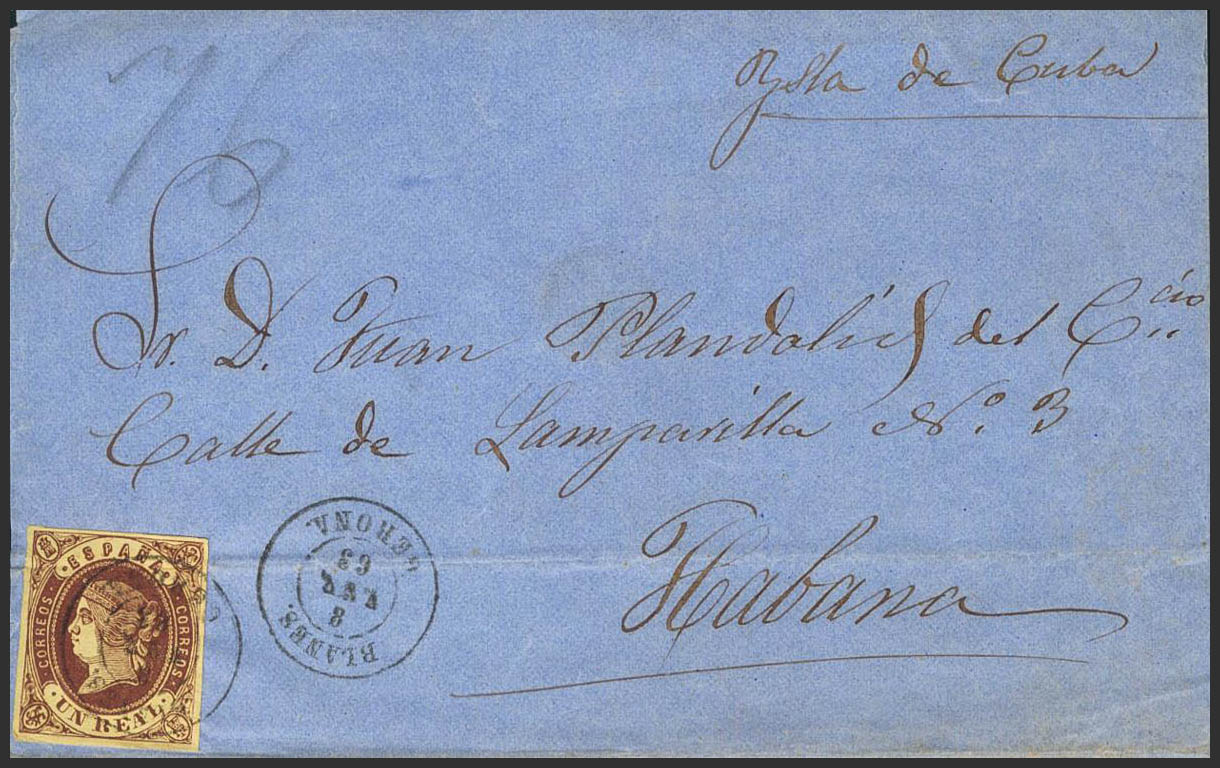 76
Ysla de Cuba
Sr. D. Juan Plandolit del C.cio
Calle de Lamparilla No. 3
Habana
BLANES.
8
63
GERONA.
ESPAÑA
CORREOS. CORREOS.
UN REAL.